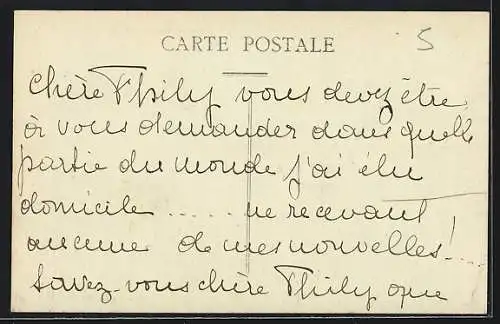 CARTE POSTALE
5
Chère Thily vous devez être
à vous demander dans quelle
partie du monde j'ai élu
domicile ...... ne recevant
aucune de mes nouvelles! ....
Savez-vous chère Thily que